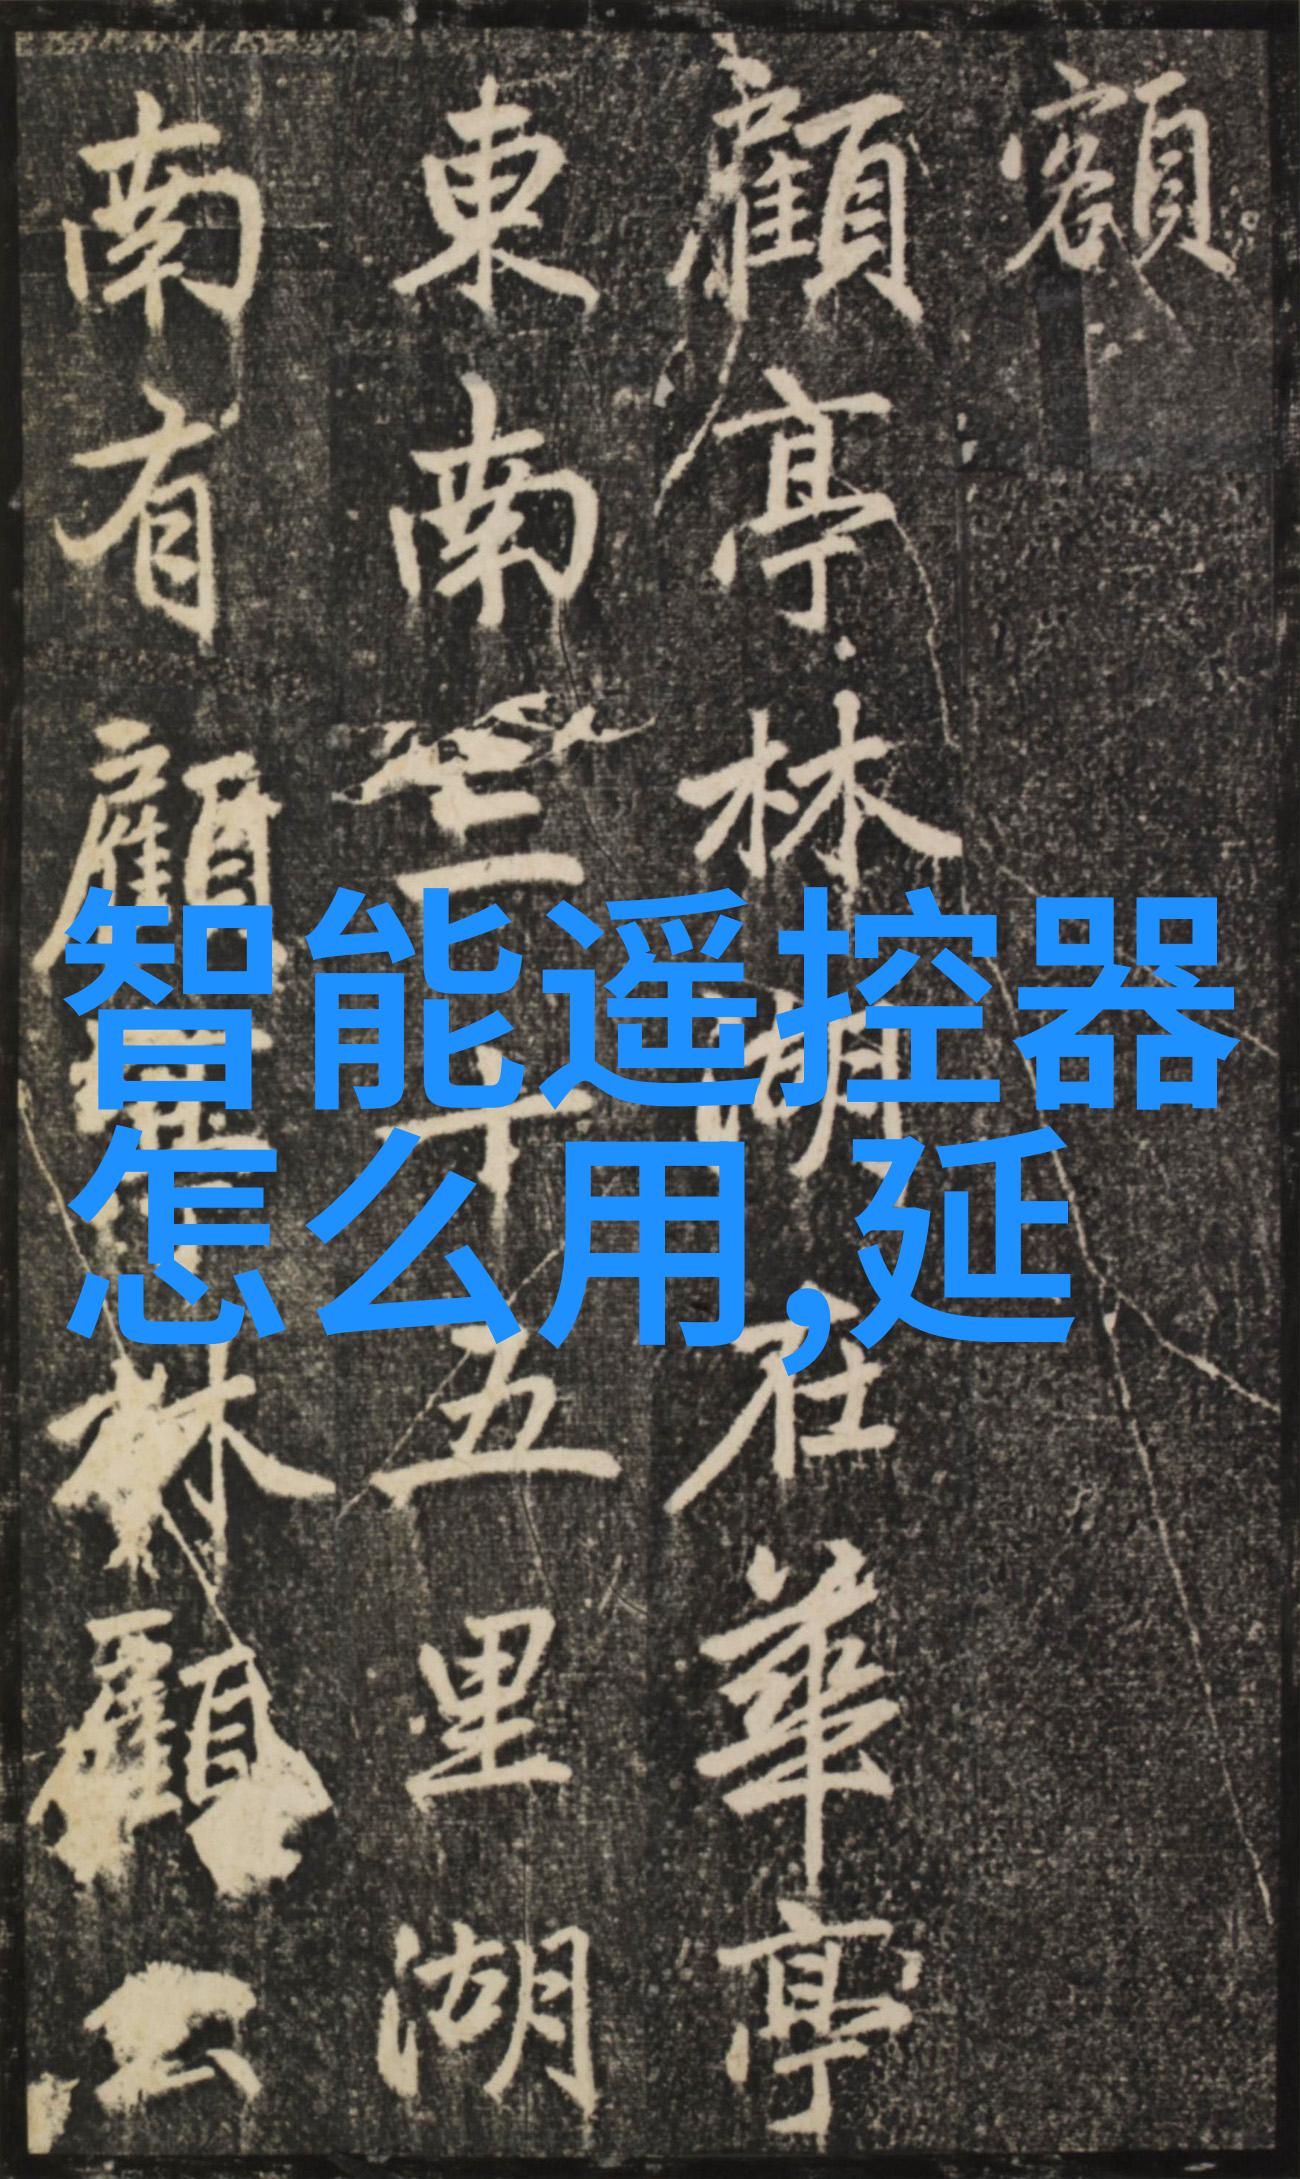 額
顧亭林湖在華亭
東南三十五里湖
南有顧亭林顧公
智能遥控器
怎么用,延